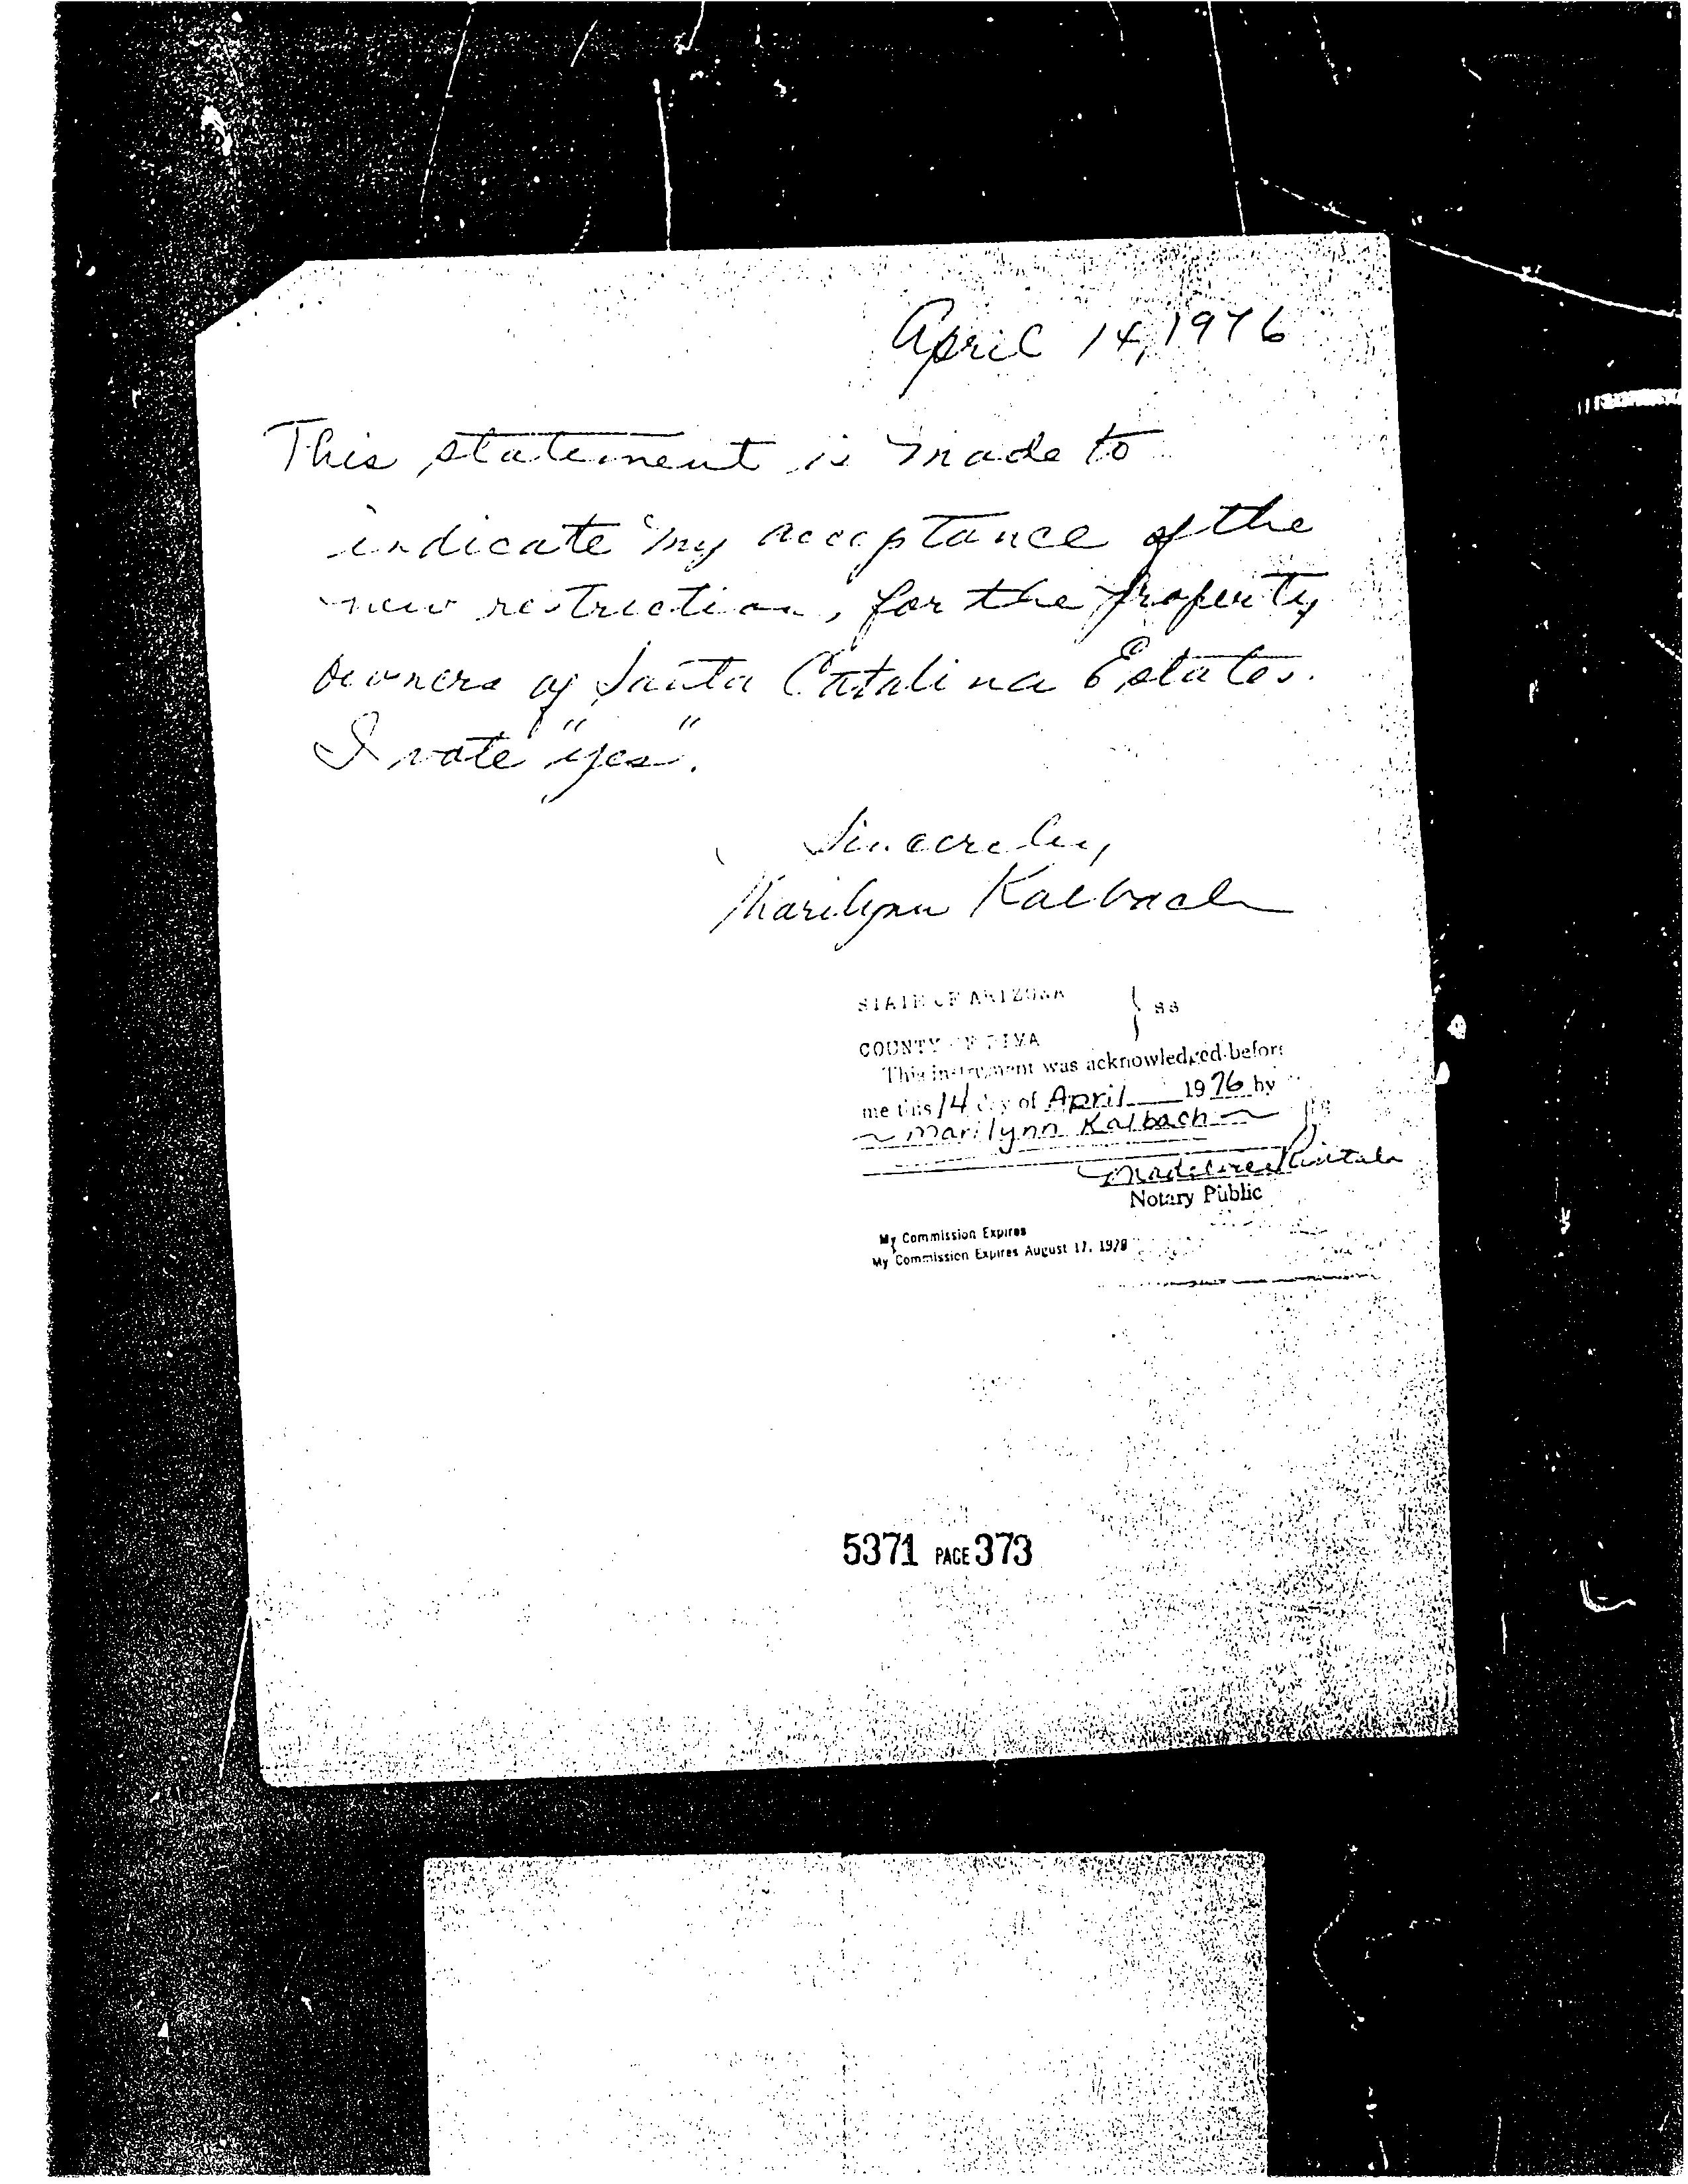 April 14, 1976
This statement is made to
indicate my acceptance of the
new restriction, for the property
owners of Santa Catalina Estates.
I vote "yes".
Sincerely,
Marilynn Kalbach
STATE OF ARIZONA } ss
COUNTY OF PIMA
This instrument was acknowledged before
me this 14 day of April 1976 by
~ Marilynn Kalbach ~
Notary Public
My Commission Expires
My Commission Expires August 17, 1979
5371 PAGE 373